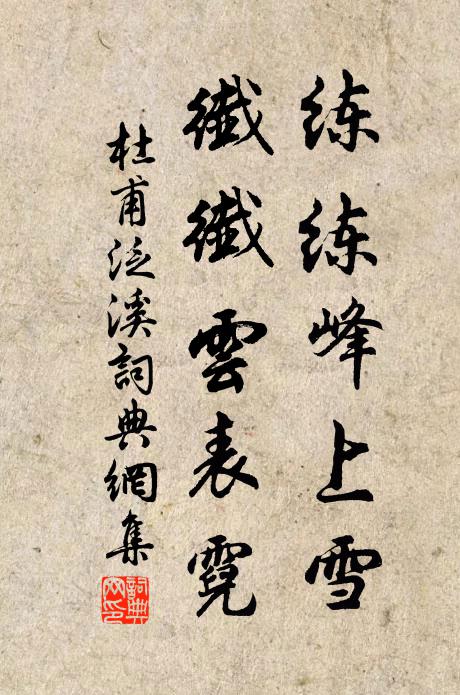 练练峰上雪
纖纖雲表霓
杜甫泛溪詞典網集
詞典網印